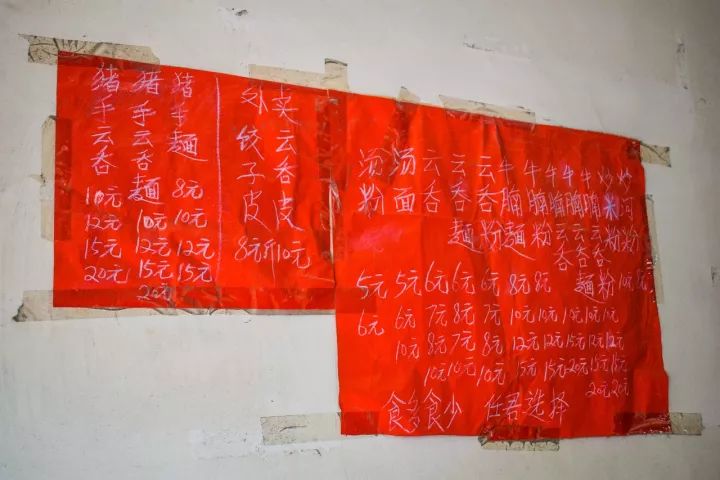 猪手云吞 10元 12元 15元 20元
猪手云吞麵 10元 12元 15元 20元
猪手麵 8元 10元 12元 15元
外卖
饺子皮 8元/斤
云吞皮 10元
汤粉 5元 6元
汤面 5元 6元 10元
云吞 6元 7元 8元 10元
云吞麵 6元 8元 7元 10元
云吞粉 6元 7元 8元 10元
牛腩麵 8元 10元 12元 15元
牛腩粉 8元 10元 12元 15元
牛腩云吞 10元 15元 20元
牛腩云吞麵 10元 12元 15元 20元
牛腩云吞粉 10元 12元 15元 20元
炒米粉 10元
炒河粉 8元
食多食少 任君选择